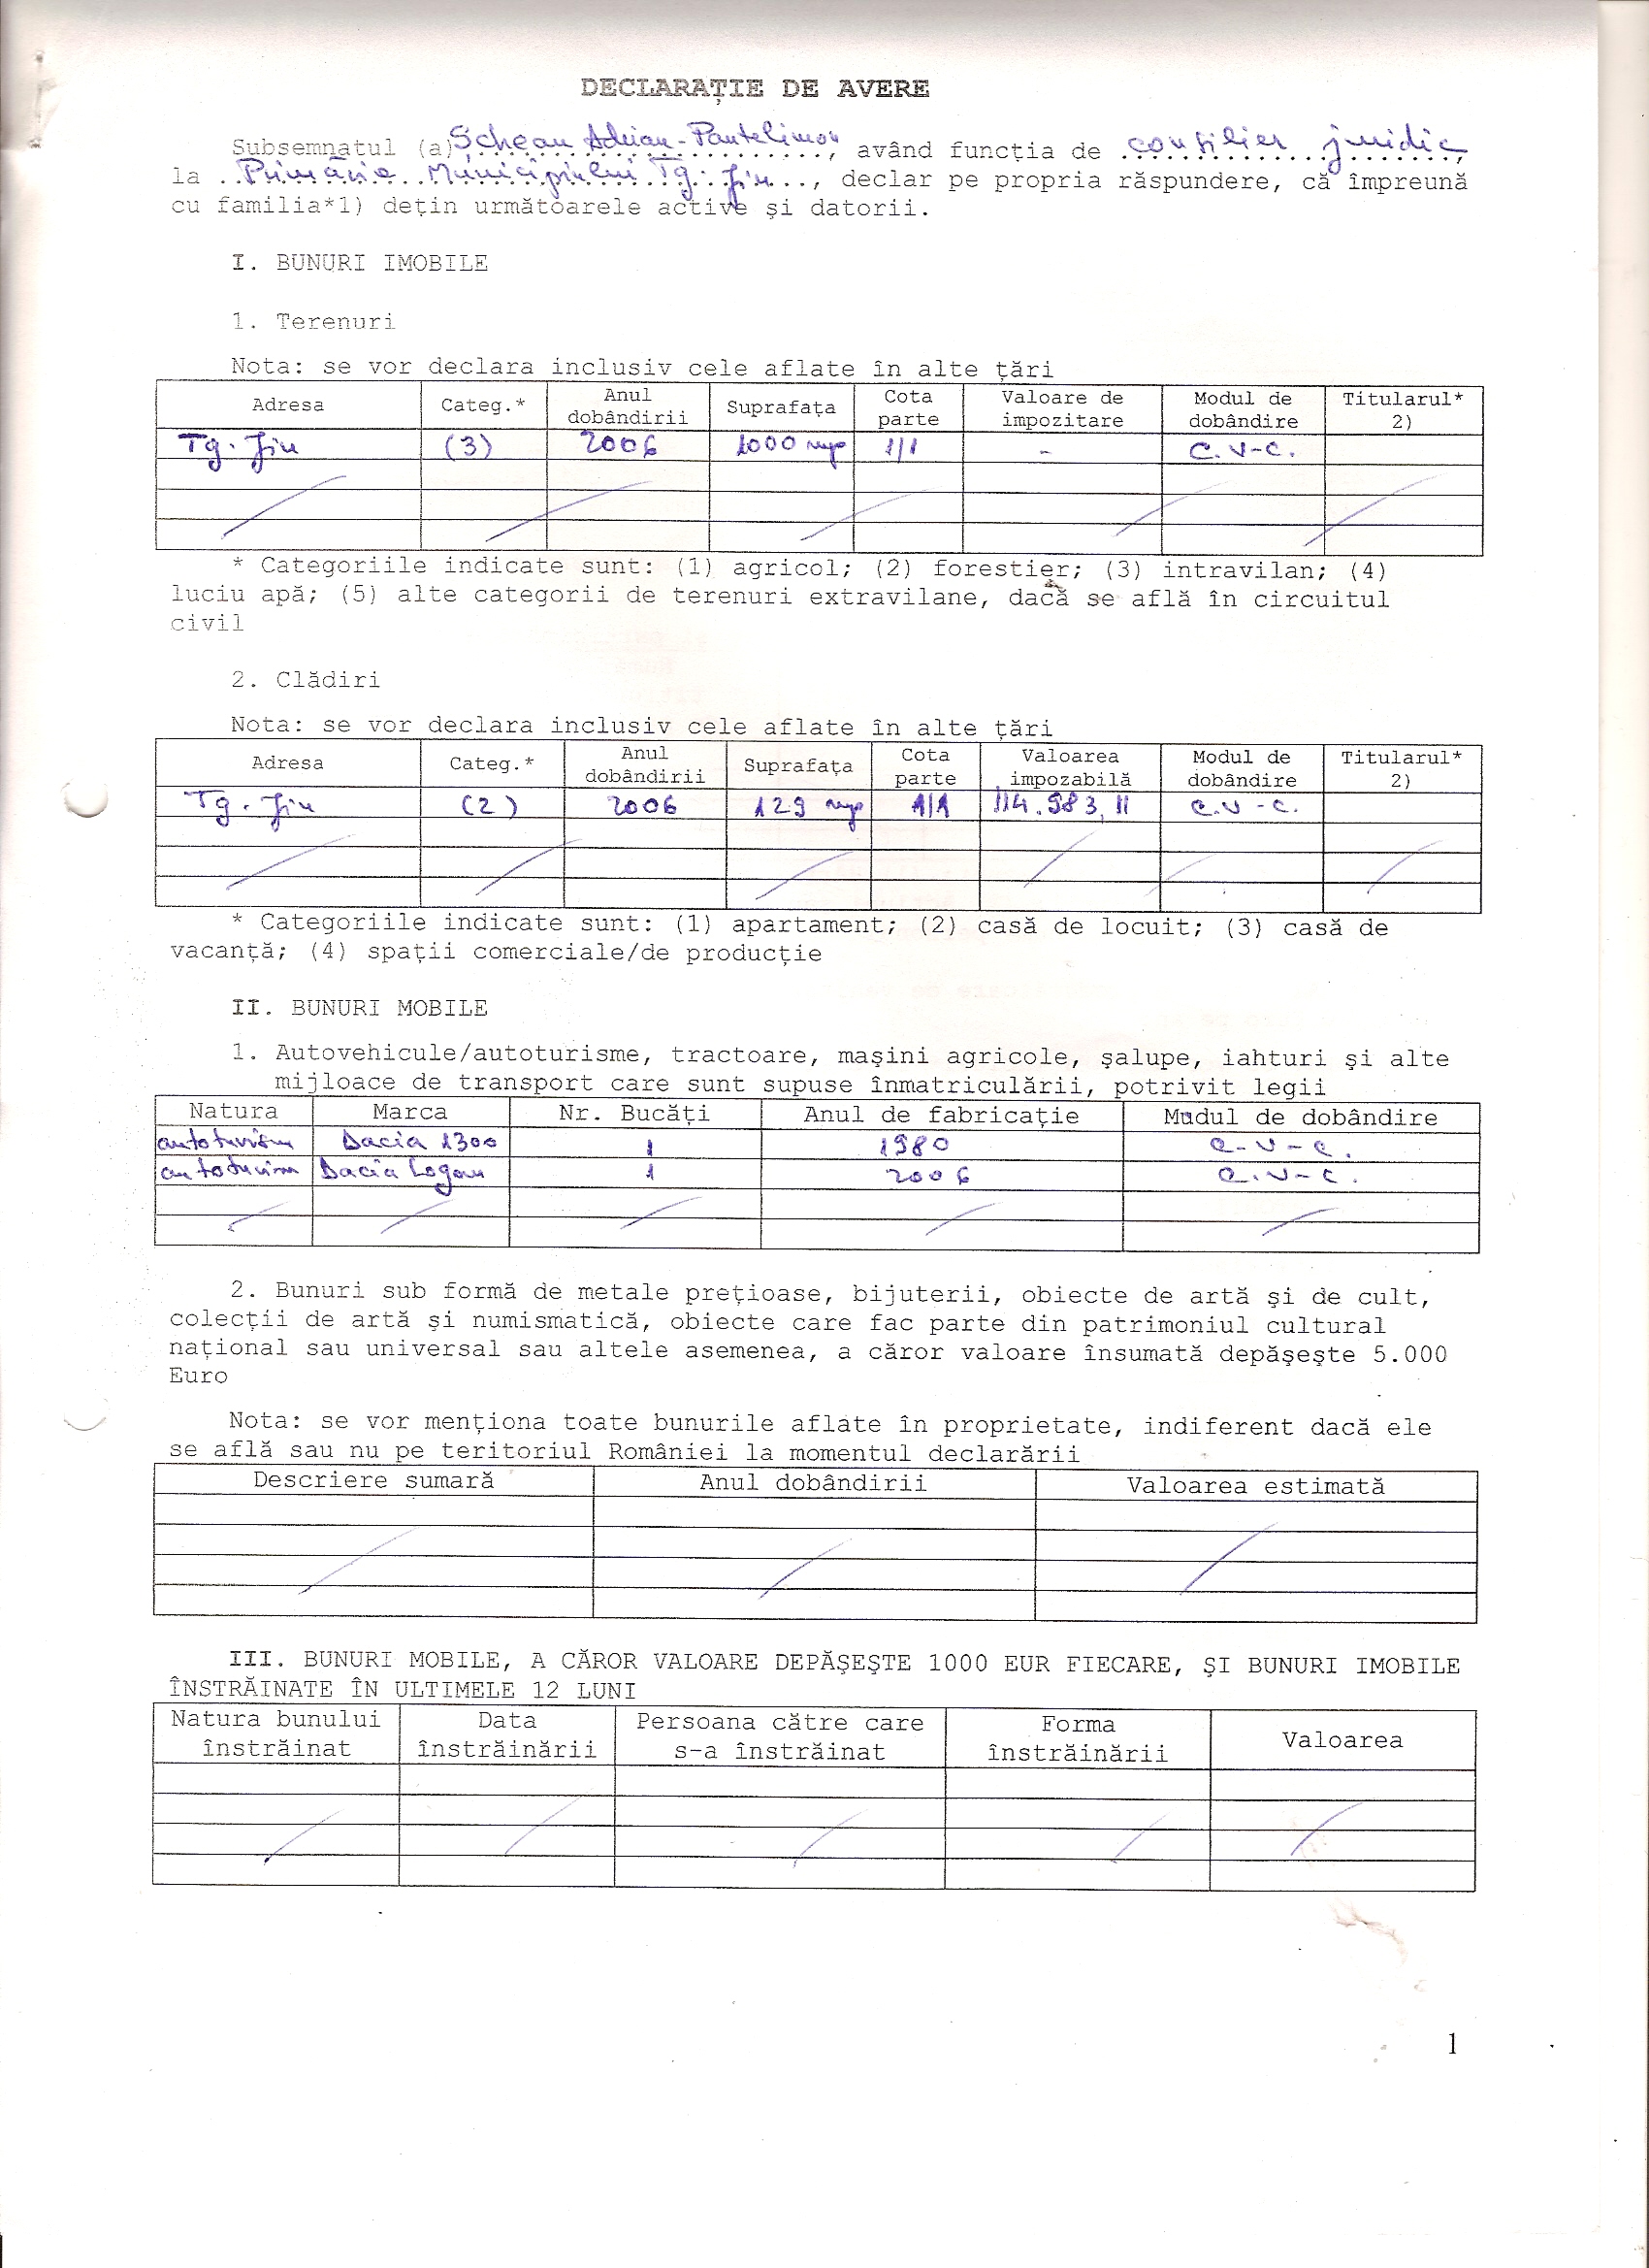 DECLARAŢIE DE AVERE
Subsemnatul (a) Schean Adrian-Pantelimon, având funcţia de consilier juridic,
la Primăria Municipiului Tg. Jiu, declar pe propria răspundere, că împreună
cu familia*1) deţin următoarele active şi datorii.
I. BUNURI IMOBILE
1. Terenuri
Nota: se vor declara inclusiv cele aflate în alte ţări
Adresa Categ.* Anul dobândirii Suprafaţa Cota parte Valoare de impozitare Modul de dobândire Titularul* 2)
Tg. Jiu (3) 2006 1000 mp 1/1 - C.V-C.
* Categoriile indicate sunt: (1) agricol; (2) forestier; (3) intravilan; (4)
luciu apă; (5) alte categorii de terenuri extravilane, dacă se află în circuitul
civil
2. Clădiri
Nota: se vor declara inclusiv cele aflate în alte ţări
Adresa Categ.* Anul dobândirii Suprafaţa Cota parte Valoarea impozabilă Modul de dobândire Titularul* 2)
Tg. Jiu (2) 2006 129 mp 1/1 114.983,11 C.V-C.
* Categoriile indicate sunt: (1) apartament; (2) casă de locuit; (3) casă de
vacanţă; (4) spaţii comerciale/de producţie
II. BUNURI MOBILE
1. Autovehicule/autoturisme, tractoare, maşini agricole, şalupe, iahturi şi alte
mijloace de transport care sunt supuse înmatriculării, potrivit legii
Natura Marca Nr. Bucăţi Anul de fabricaţie Mudul de dobândire
autoturism Dacia 1300 1 1980 C.V-C.
autoturism Dacia Logan 1 2006 C.V-C.
2. Bunuri sub formă de metale preţioase, bijuterii, obiecte de artă şi de cult,
colecţii de artă şi numismatică, obiecte care fac parte din patrimoniul cultural
naţional sau universal sau altele asemenea, a căror valoare însumată depăşeşte 5.000
Euro
Nota: se vor menţiona toate bunurile aflate în proprietate, indiferent dacă ele
se află sau nu pe teritoriul României la momentul declarării
Descriere sumară Anul dobândirii Valoarea estimată
III. BUNURI MOBILE, A CĂROR VALOARE DEPĂŞEŞTE 1000 EUR FIECARE, ŞI BUNURI IMOBILE
ÎNSTRĂINATE ÎN ULTIMELE 12 LUNI
Natura bunului înstrăinat Data înstrăinării Persoana către care s-a înstrăinat Forma înstrăinării Valoarea
1